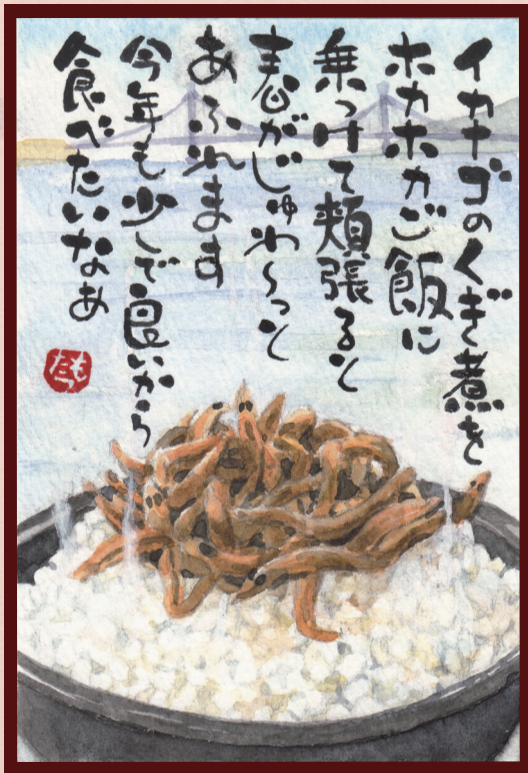 イカナゴのくぎ煮を
ホカホカご飯に
乗っけて頬張ると
がじゅわ〜っと
あふれます
今年も少しで良いから
食べたいなあ
たもつ